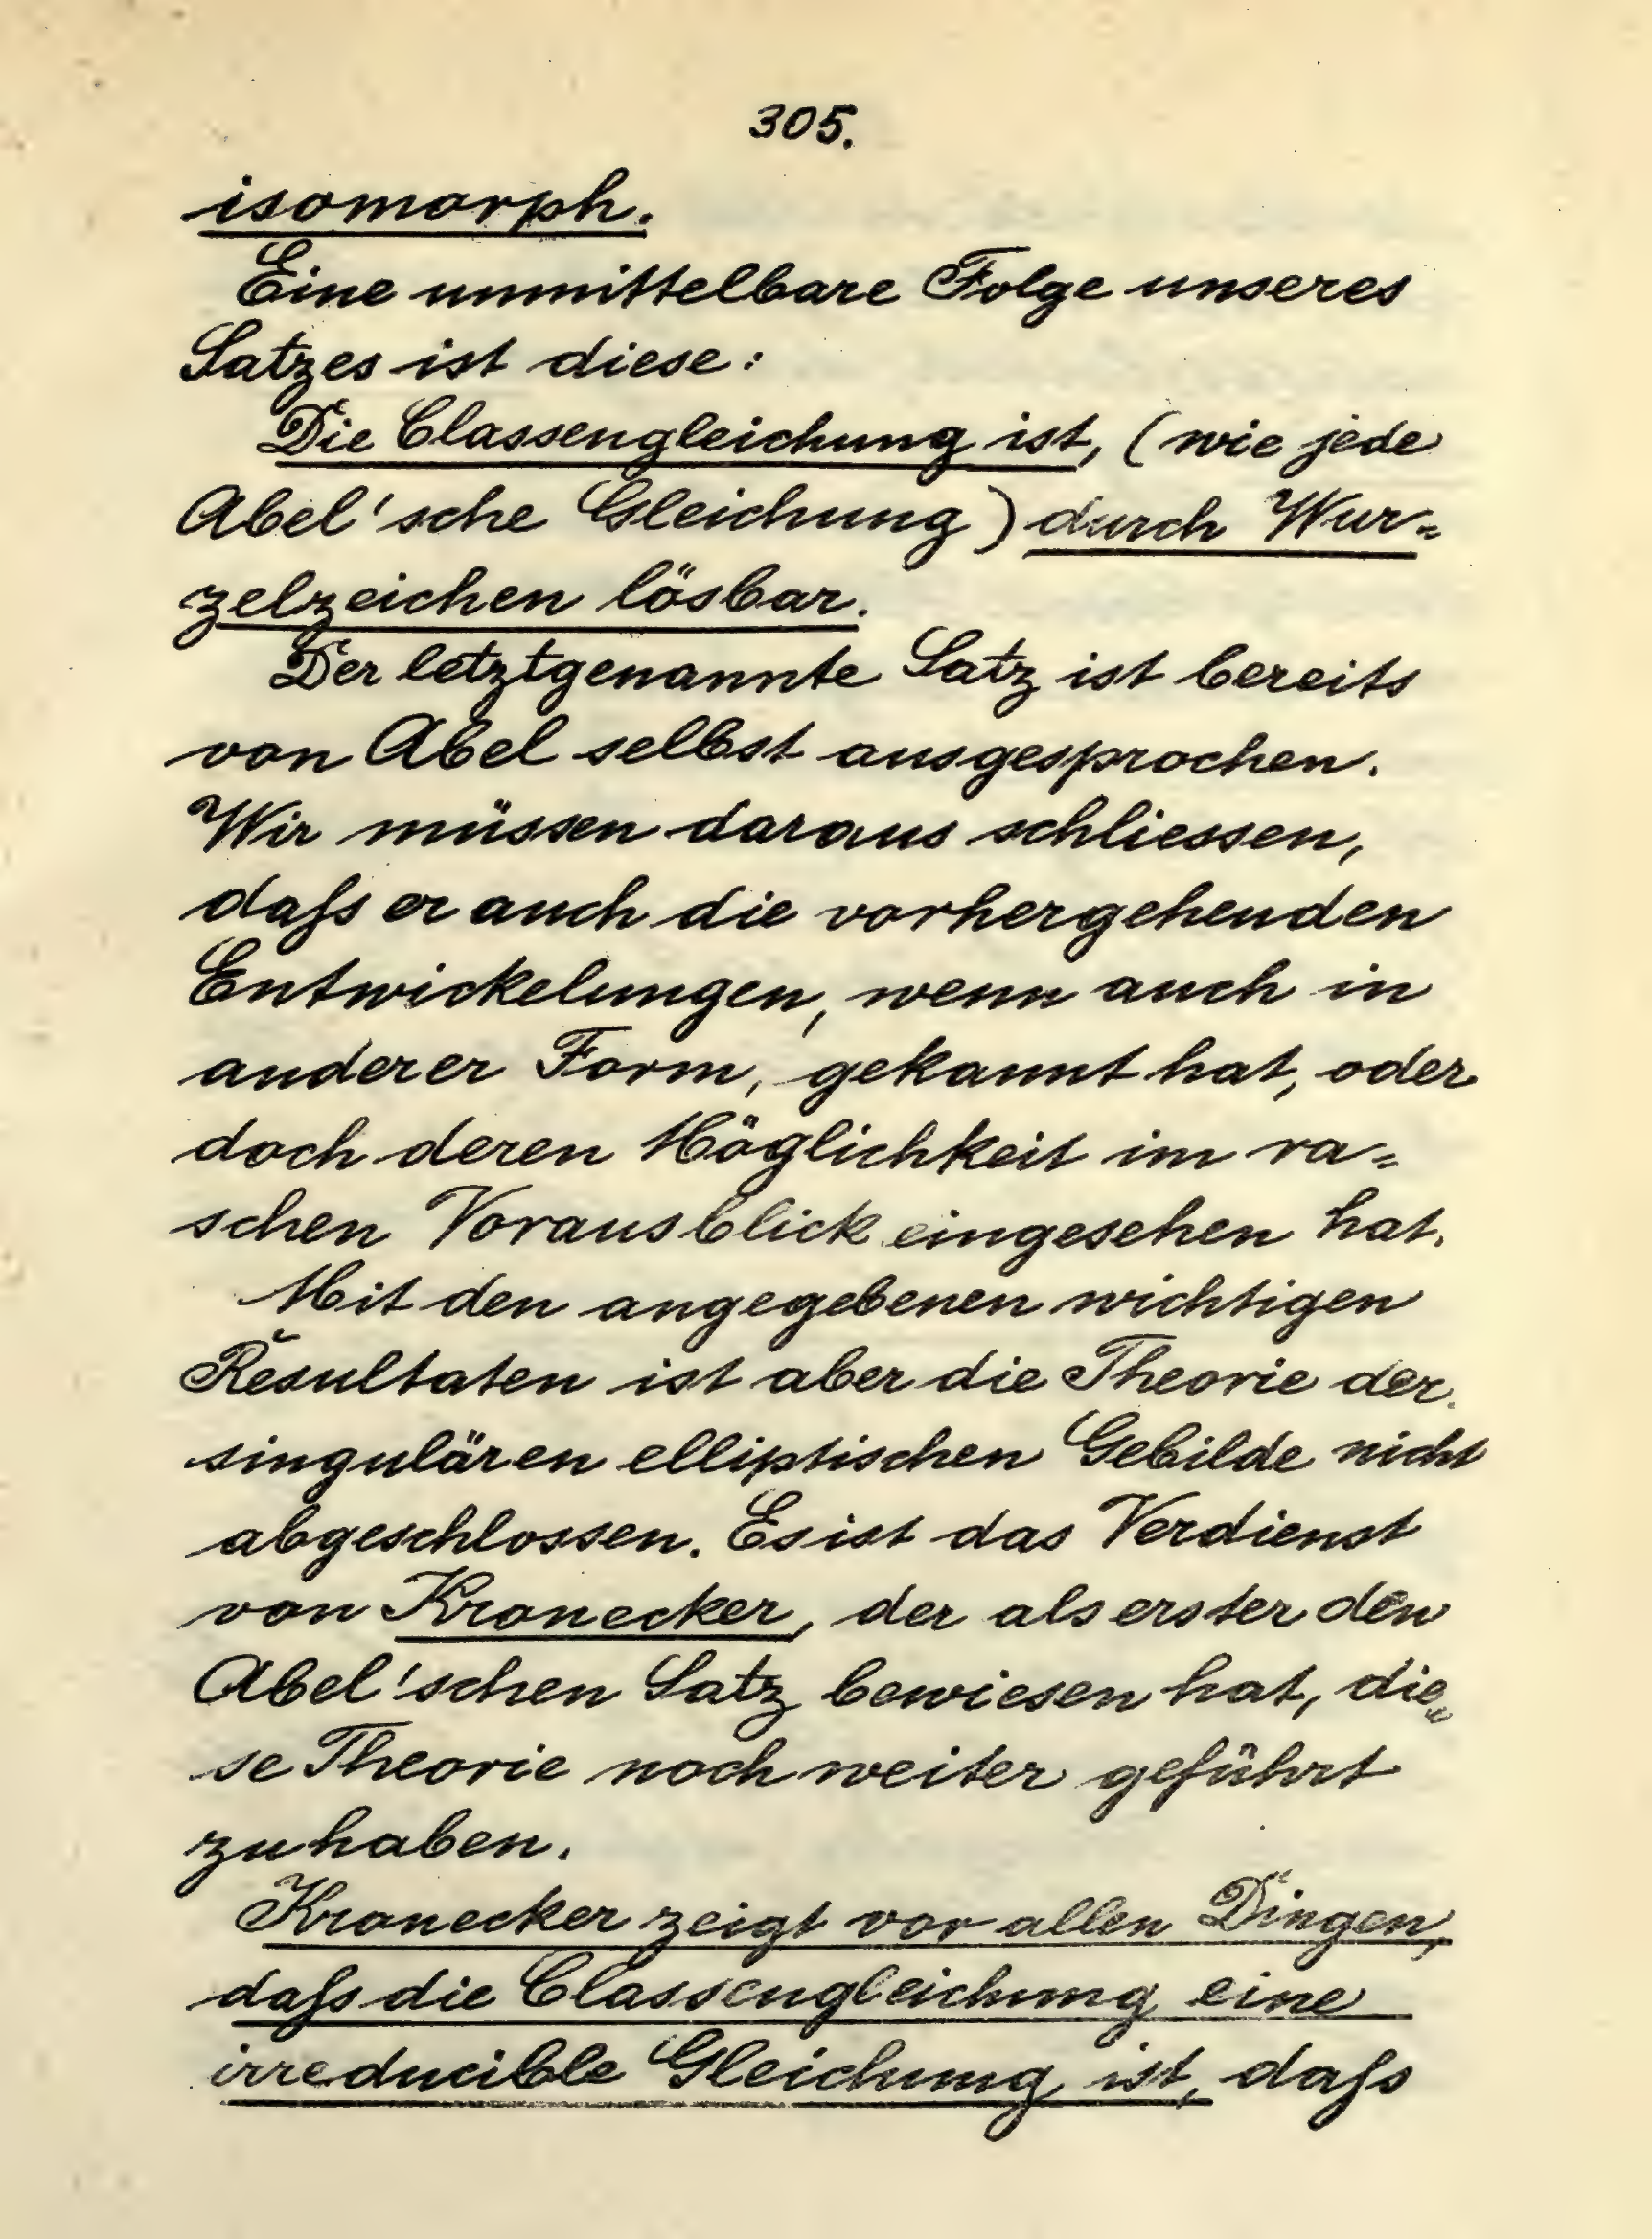 305.
isomorph.
Eine unmittelbare Folge unseres
Satzes ist diese:
Die Classengleichung ist, (wie jede
Abel'sche Gleichung) durch Wur=
zelzeichen lösbar.
Der letztgenannte Satz ist bereits
von Abel selbst ausgesprochen.
Wir müssen daraus schliessen,
daſs er auch die vorhergehenden
Entwickelungen, wenn auch in
anderer Form, gekannt hat, oder
doch deren Möglichkeit im ra=
schen Vorausblick eingesehen hat.
Mit den angegebenen wichtigen
Resultaten ist aber die Theorie der
singulären elliptischen Gebilde nicht
abgeschlossen. Es ist das Verdienst
von Kronecker, der als erster den
Abel'schen Satz bewiesen hat, die=
se Theorie noch weiter geführt
zu haben.
Kronecker zeigt vor allen Dingen,
daſs die Classengleichung eine
irreducible Gleichung ist, daſs